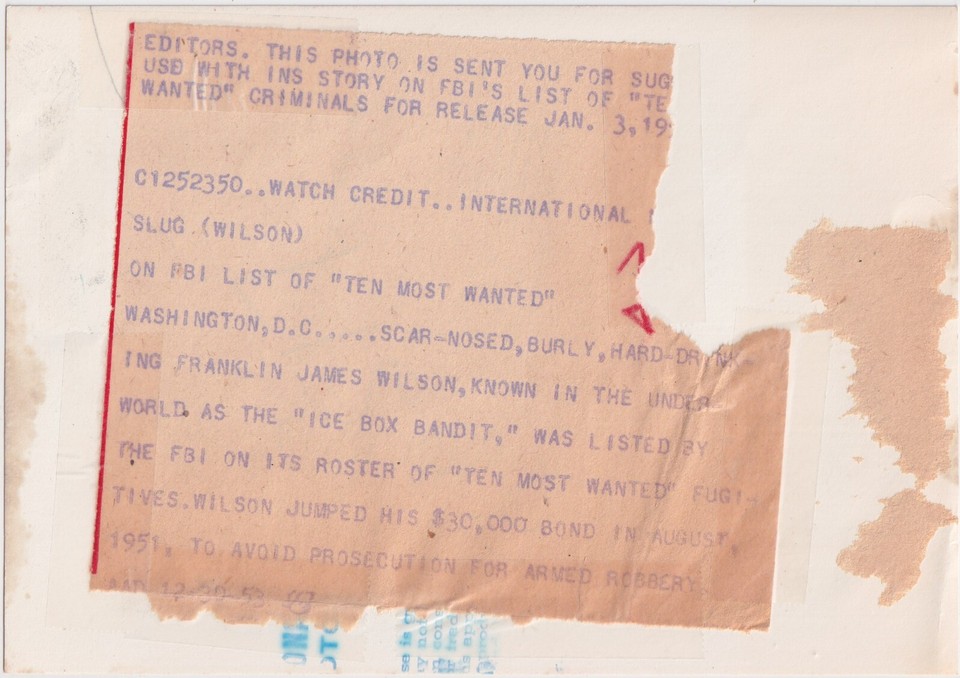 EDITORS. THIS PHOTO IS SENT YOU FOR SUG
USE WITH INS STORY ON FBI'S LIST OF "TE
WANTED" CRIMINALS FOR RELEASE JAN. 3,19
C1252350..WATCH CREDIT..INTERNATIONAL
SLUG (WILSON)
ON FBI LIST OF "TEN MOST WANTED"
WASHINGTON,D.C.....SCAR-NOSED,BURLY,HARD-DRINK-
ING FRANKLIN JAMES WILSON,KNOWN IN THE UNDER-
WORLD AS THE "ICE BOX BANDIT," WAS LISTED BY
THE FBI ON ITS ROSTER OF "TEN MOST WANTED" FUGI-
TIVES.WILSON JUMPED HIS $30,000 BOND IN AUGUST,
1951, TO AVOID PROSECUTION FOR ARMED ROBBERY